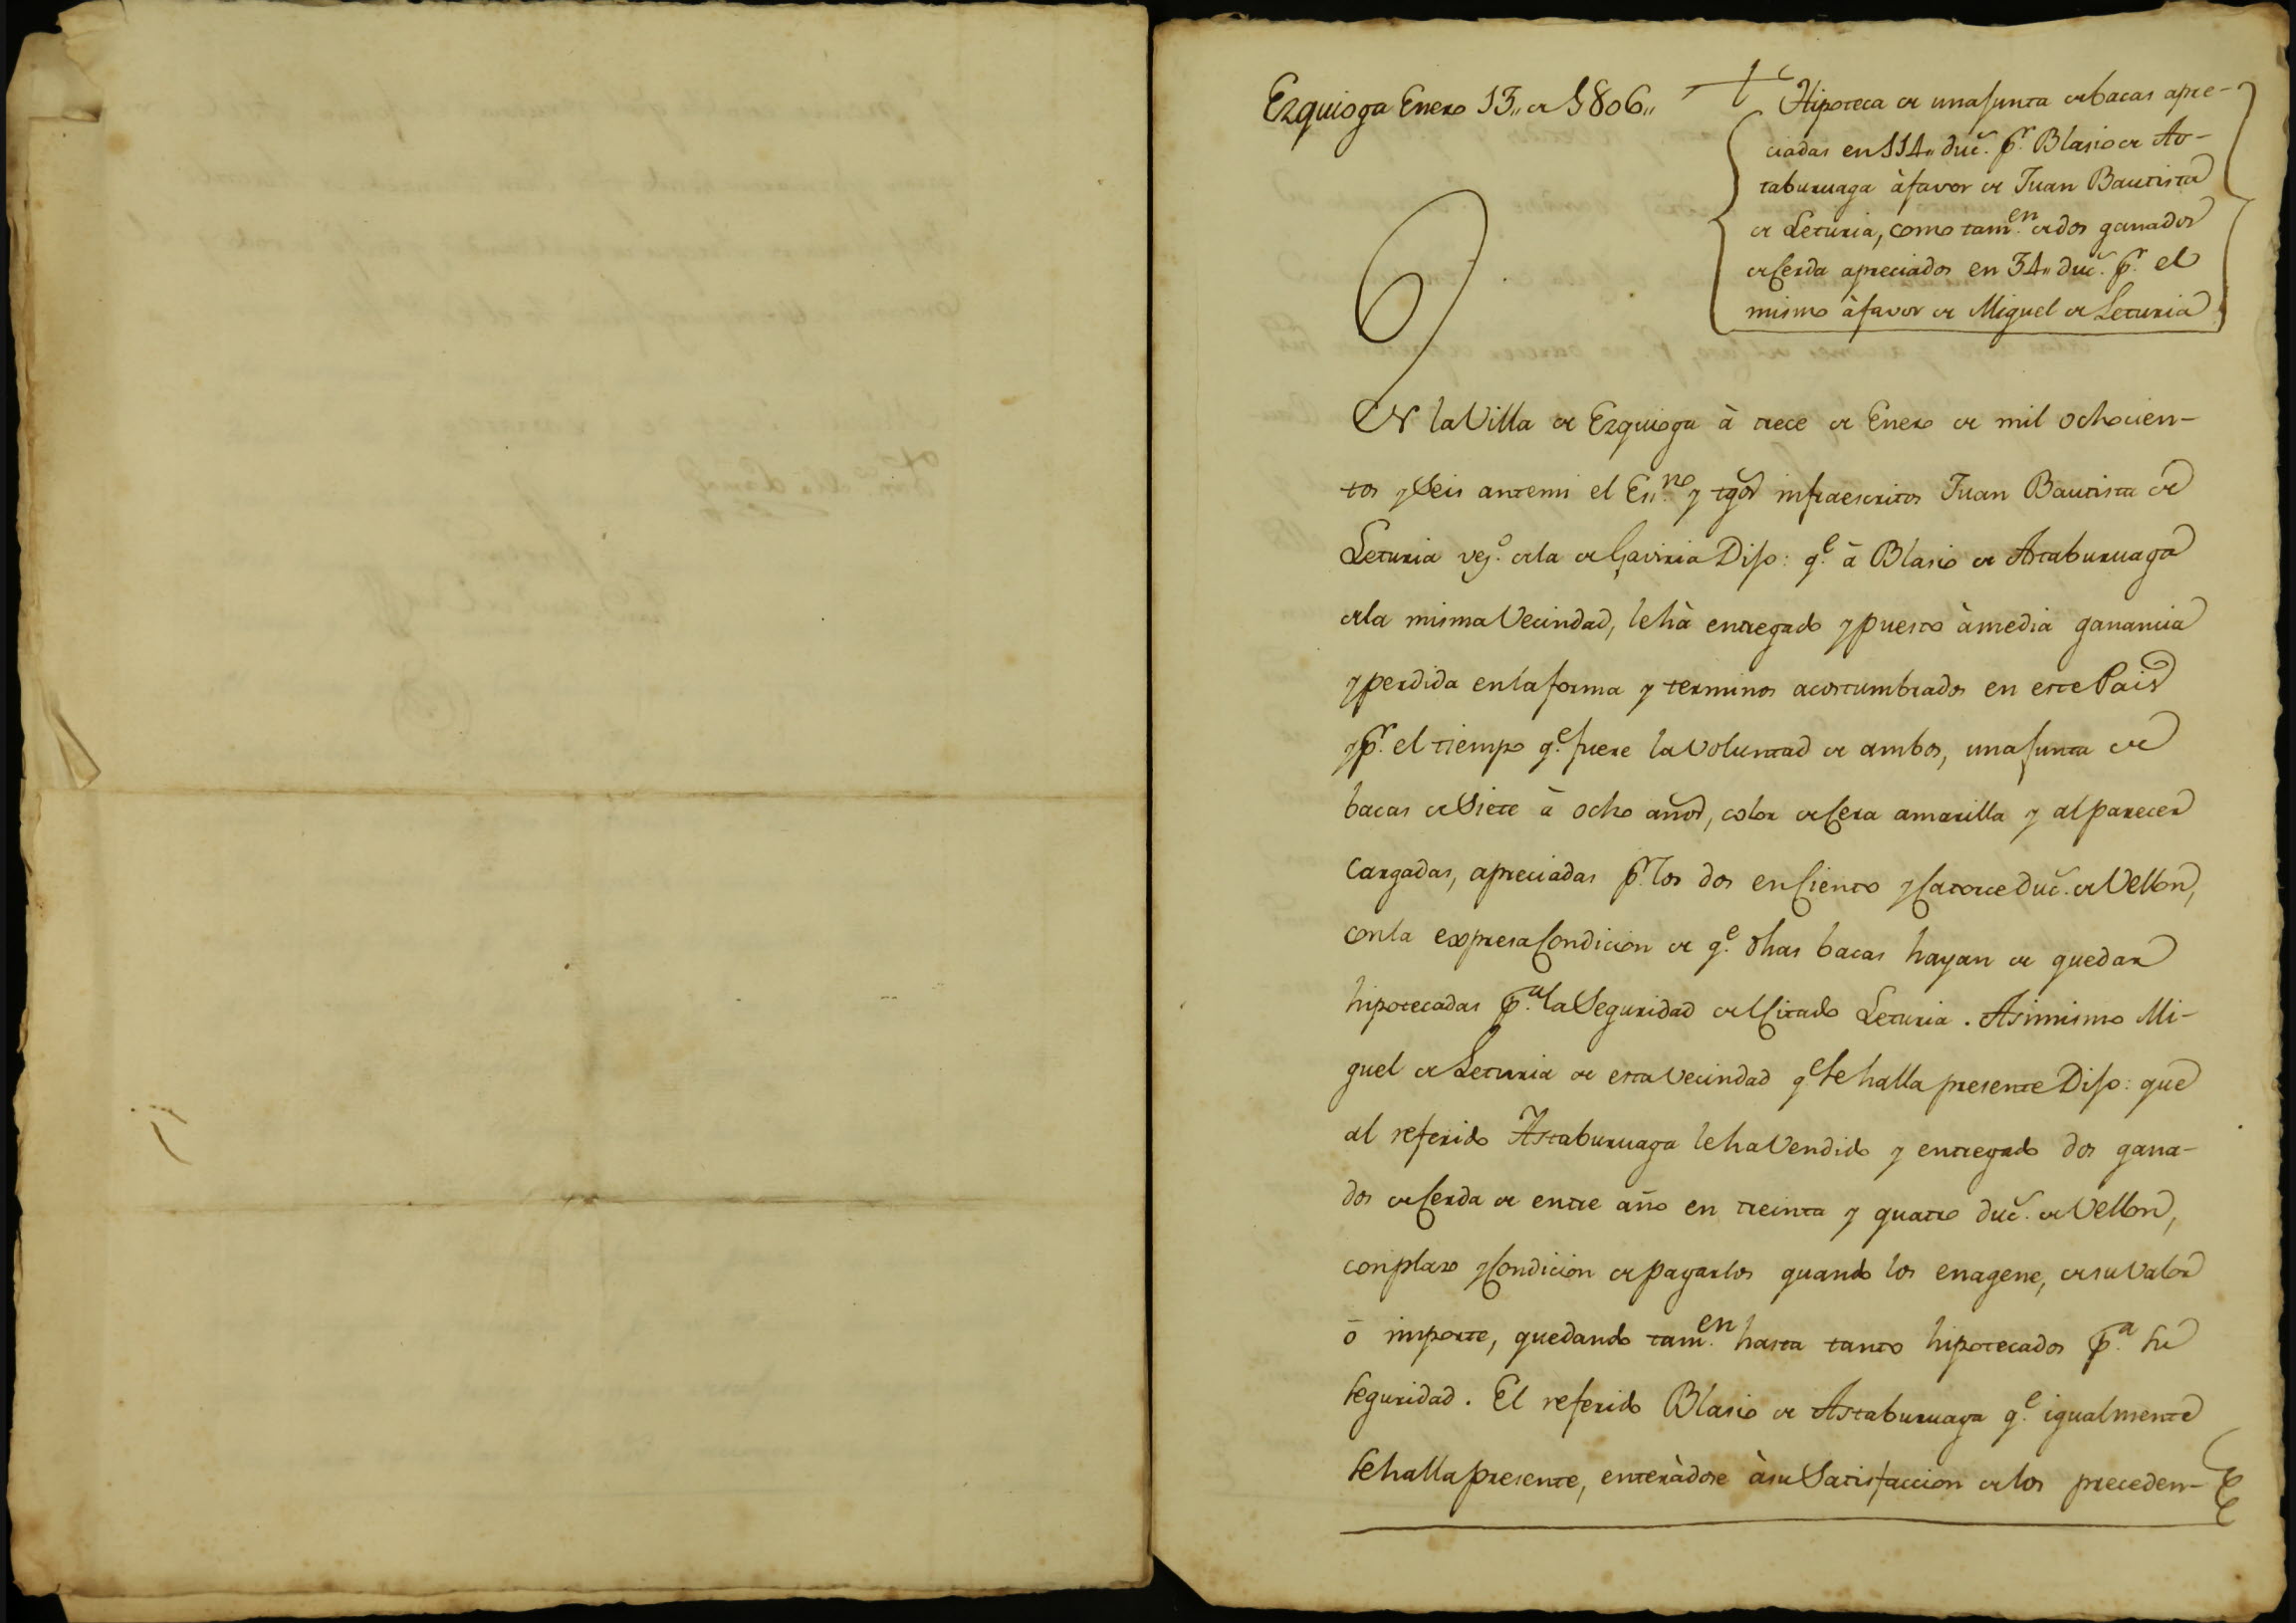 Ezquioga Enero 13,, de 1806,,
Hipoteca de una Junta de bacas apre-
ciadas en 114,, duc. pr. Blasio de As-
taburuaga à favor de Juan Bautista
de Leturia, como tamen. de dos ganados
de Cerda apreciados en 34,, duc. pr. el
mismo à favor de Miguel de Leturia
En la Villa de Ezquioga à trece de Enero de mil ochocien-
tos y Seis ante mi el Es.no y tgos infraescritos Juan Bautista de
Leturia veo. de la de Gaviria Dijo: qe. à Blasio de Astaburuaga
de la misma Vecindad, le hà entregado y puesto à media ganancia
y perdida en la forma y terminos acostumbrados en este Pais
y pr. el tiempo qe. fuere la voluntad de ambos, una Junta de
bacas de Siete à ocho años, color de Cera amarilla y al parecer
Cargadas, apreciadas pr. los dos en Ciento y Catorce duc. de Vellon,
con la expresa Condicion de qe. dhas bacas hayan de quedar
hipotecadas pa. la Seguridad del Citado Leturia. Asimismo Mi-
guel de Leturia de esta vecindad qe. se halla presente Dijo: que
al referido Astaburuaga le ha Vendido y entregado dos gana-
dos de Cerda de entre año en treinta y quatro duc. de Vellon,
con plazo y Condicion de pagarlos quando los enagene, de su valor
ò importe, quedando tamen. hasta tanto hipotecados pa. su
seguridad. El referido Blasio de Astaburuaga qe. igualmente
se halla presente, enteràdose à su Satisfaccion de los preceden-